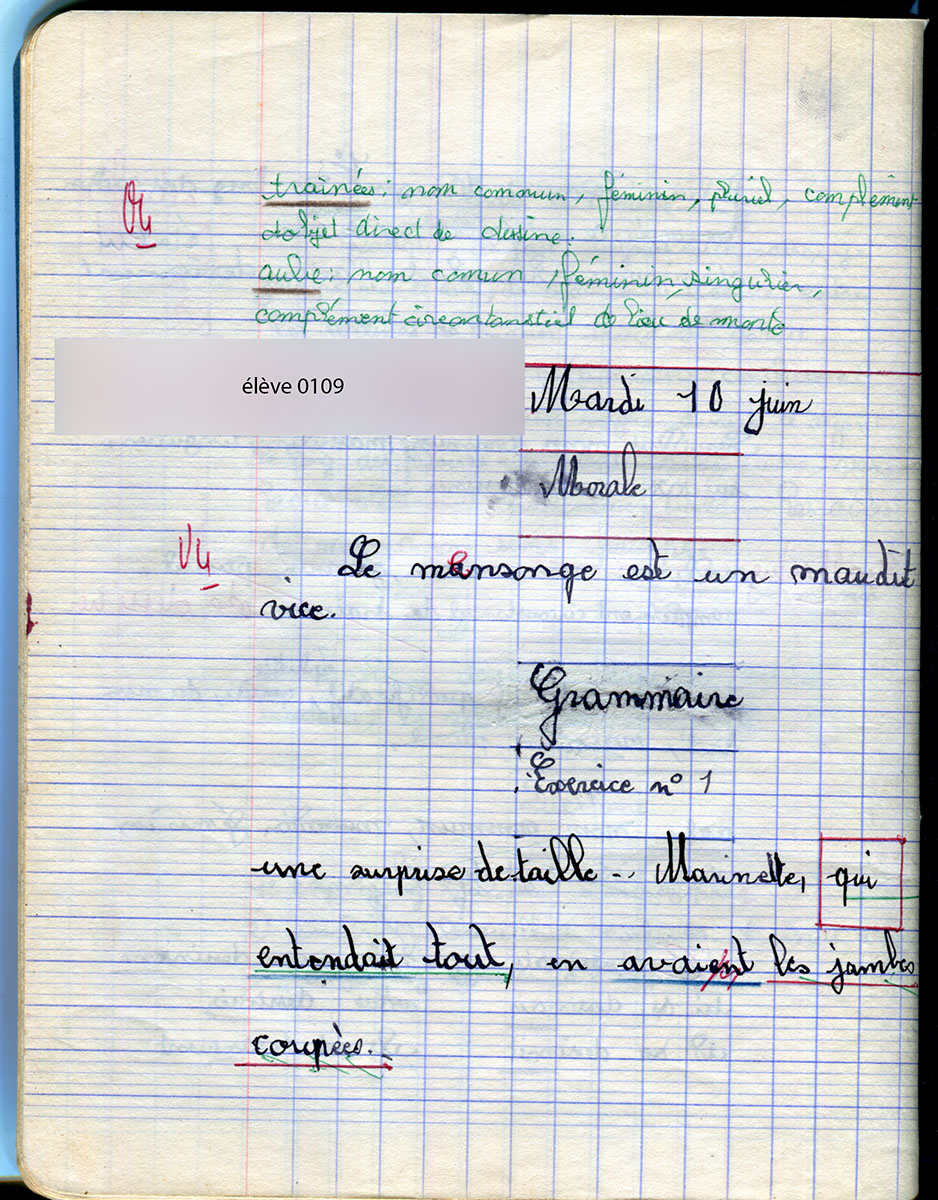 Vu
trainées : nom commun, féminin, pluriel, complément
d'objet direct de dessine.
aube : nom comun, féminin, singulier,
complément circontanstiel de lieu de monte
élève 0109
Mardi 10 juin
Morale
Vu
Le mensonge est un maudit
vice.
Grammaire
Exercice n° 1
une surprise de taille .. Marinette, qui
entendait tout, en avaient les jambes
coupées.